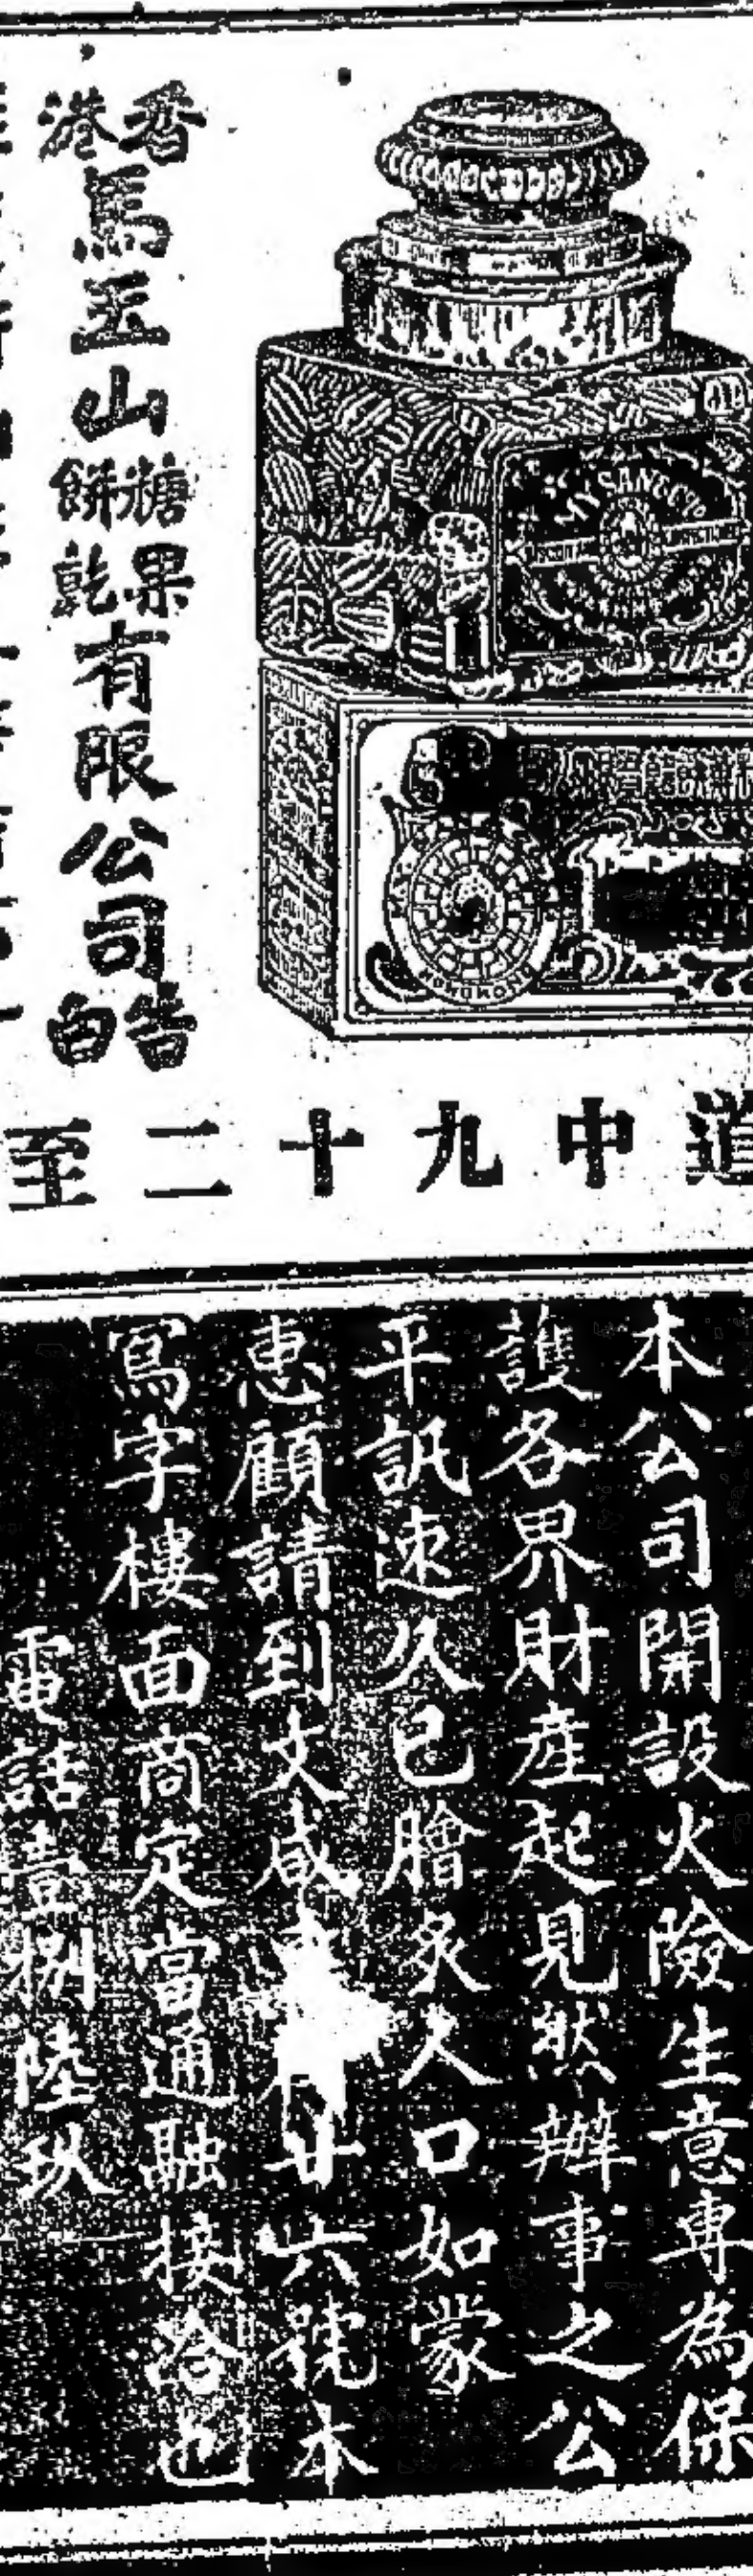 香港馬玉山糖果餅乾有限公司告白
MY SAN & CO
HONGKONG
道中九十二至
本公司開設火險生意專為保
護各界財產起見然辦事之公
平訊速久已膾炙人口如蒙
惠顧請到文咸廿六號本
寫字樓面商定當通融接洽也
電話壹捌陸玖